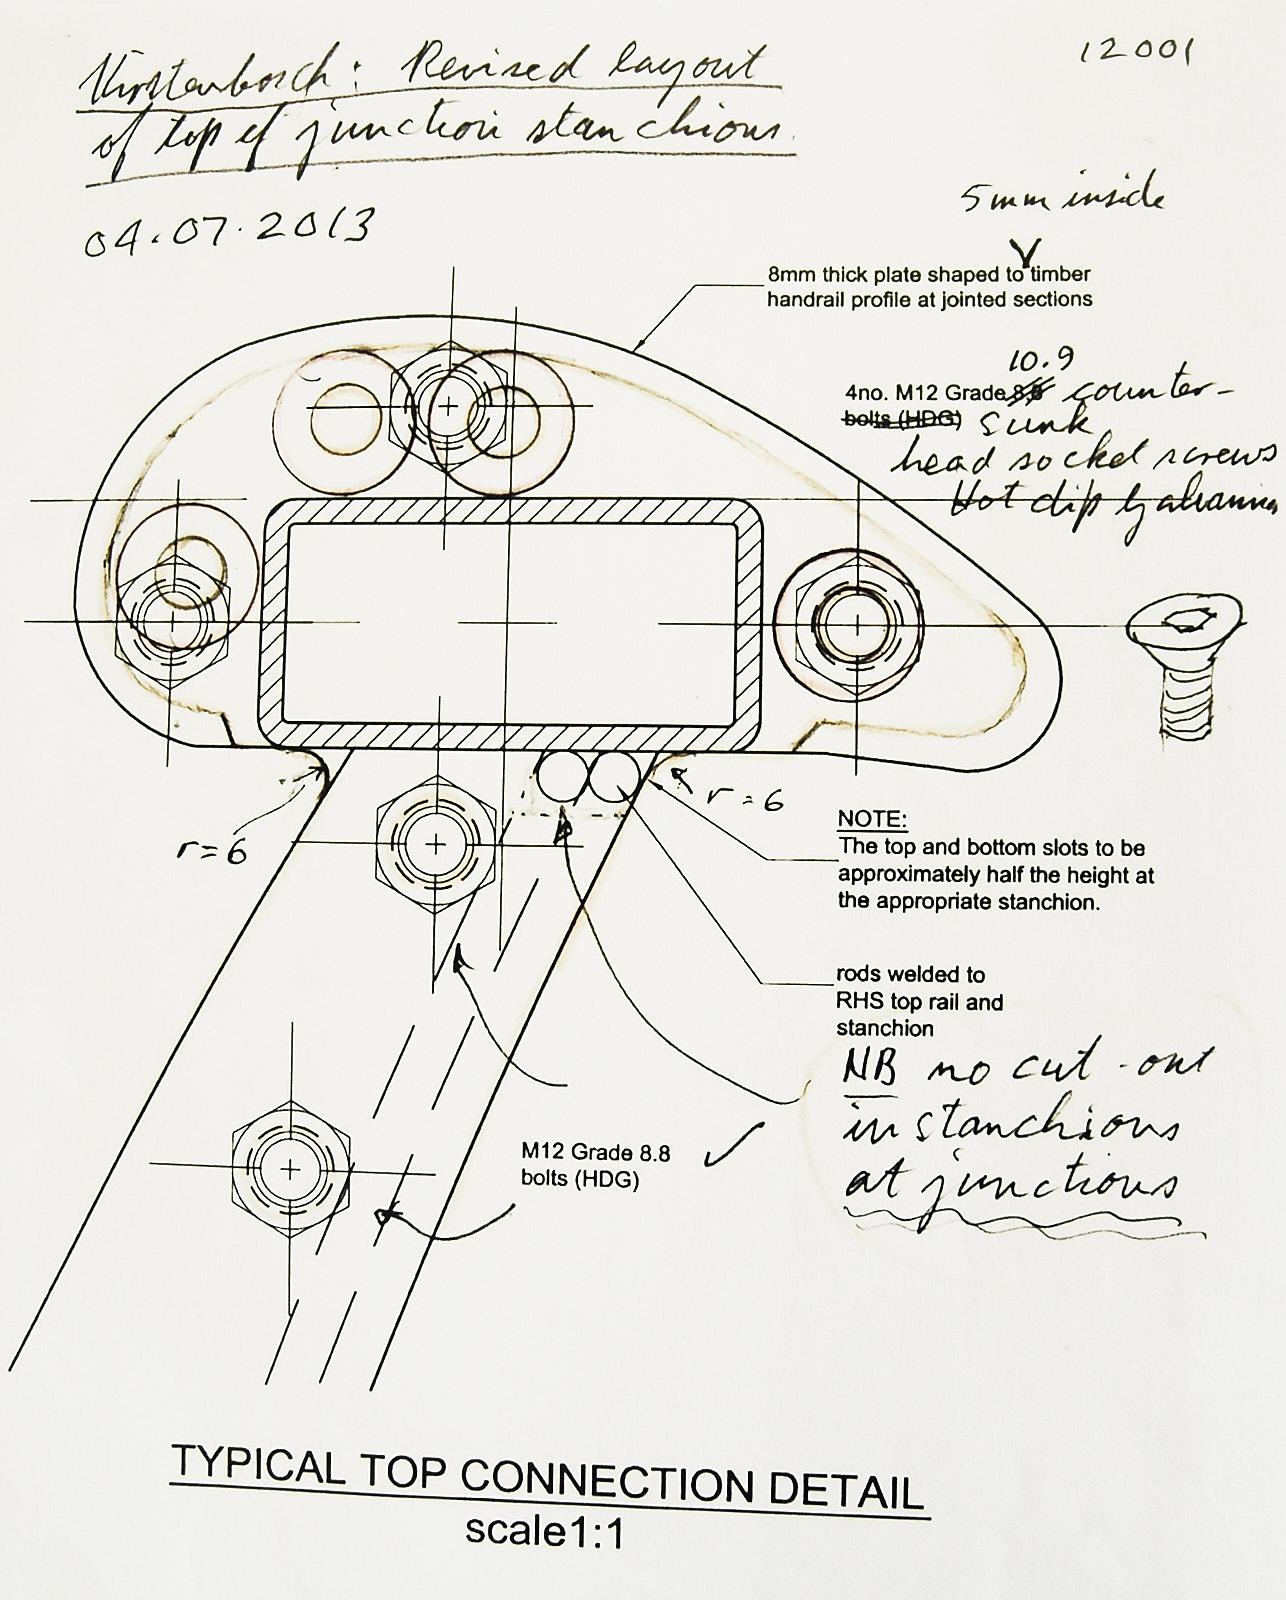 Kirstenbosch: Revised layout
of top of junction stanchions.
12001
04.07.2013
5mm inside
8mm thick plate shaped to timber
handrail profile at jointed sections
10.9
4no. M12 Grade 8.8 counter-
bolts (HDG) sunk
head socket screws
Hot dip
r=6
r=6
NOTE:
The top and bottom slots to be
approximately half the height at
the appropriate stanchion.
rods welded to
RHS top rail and
stanchion
NB no cut-out
in stanchions
at junctions
M12 Grade 8.8
bolts (HDG)
TYPICAL TOP CONNECTION DETAIL
scale1:1